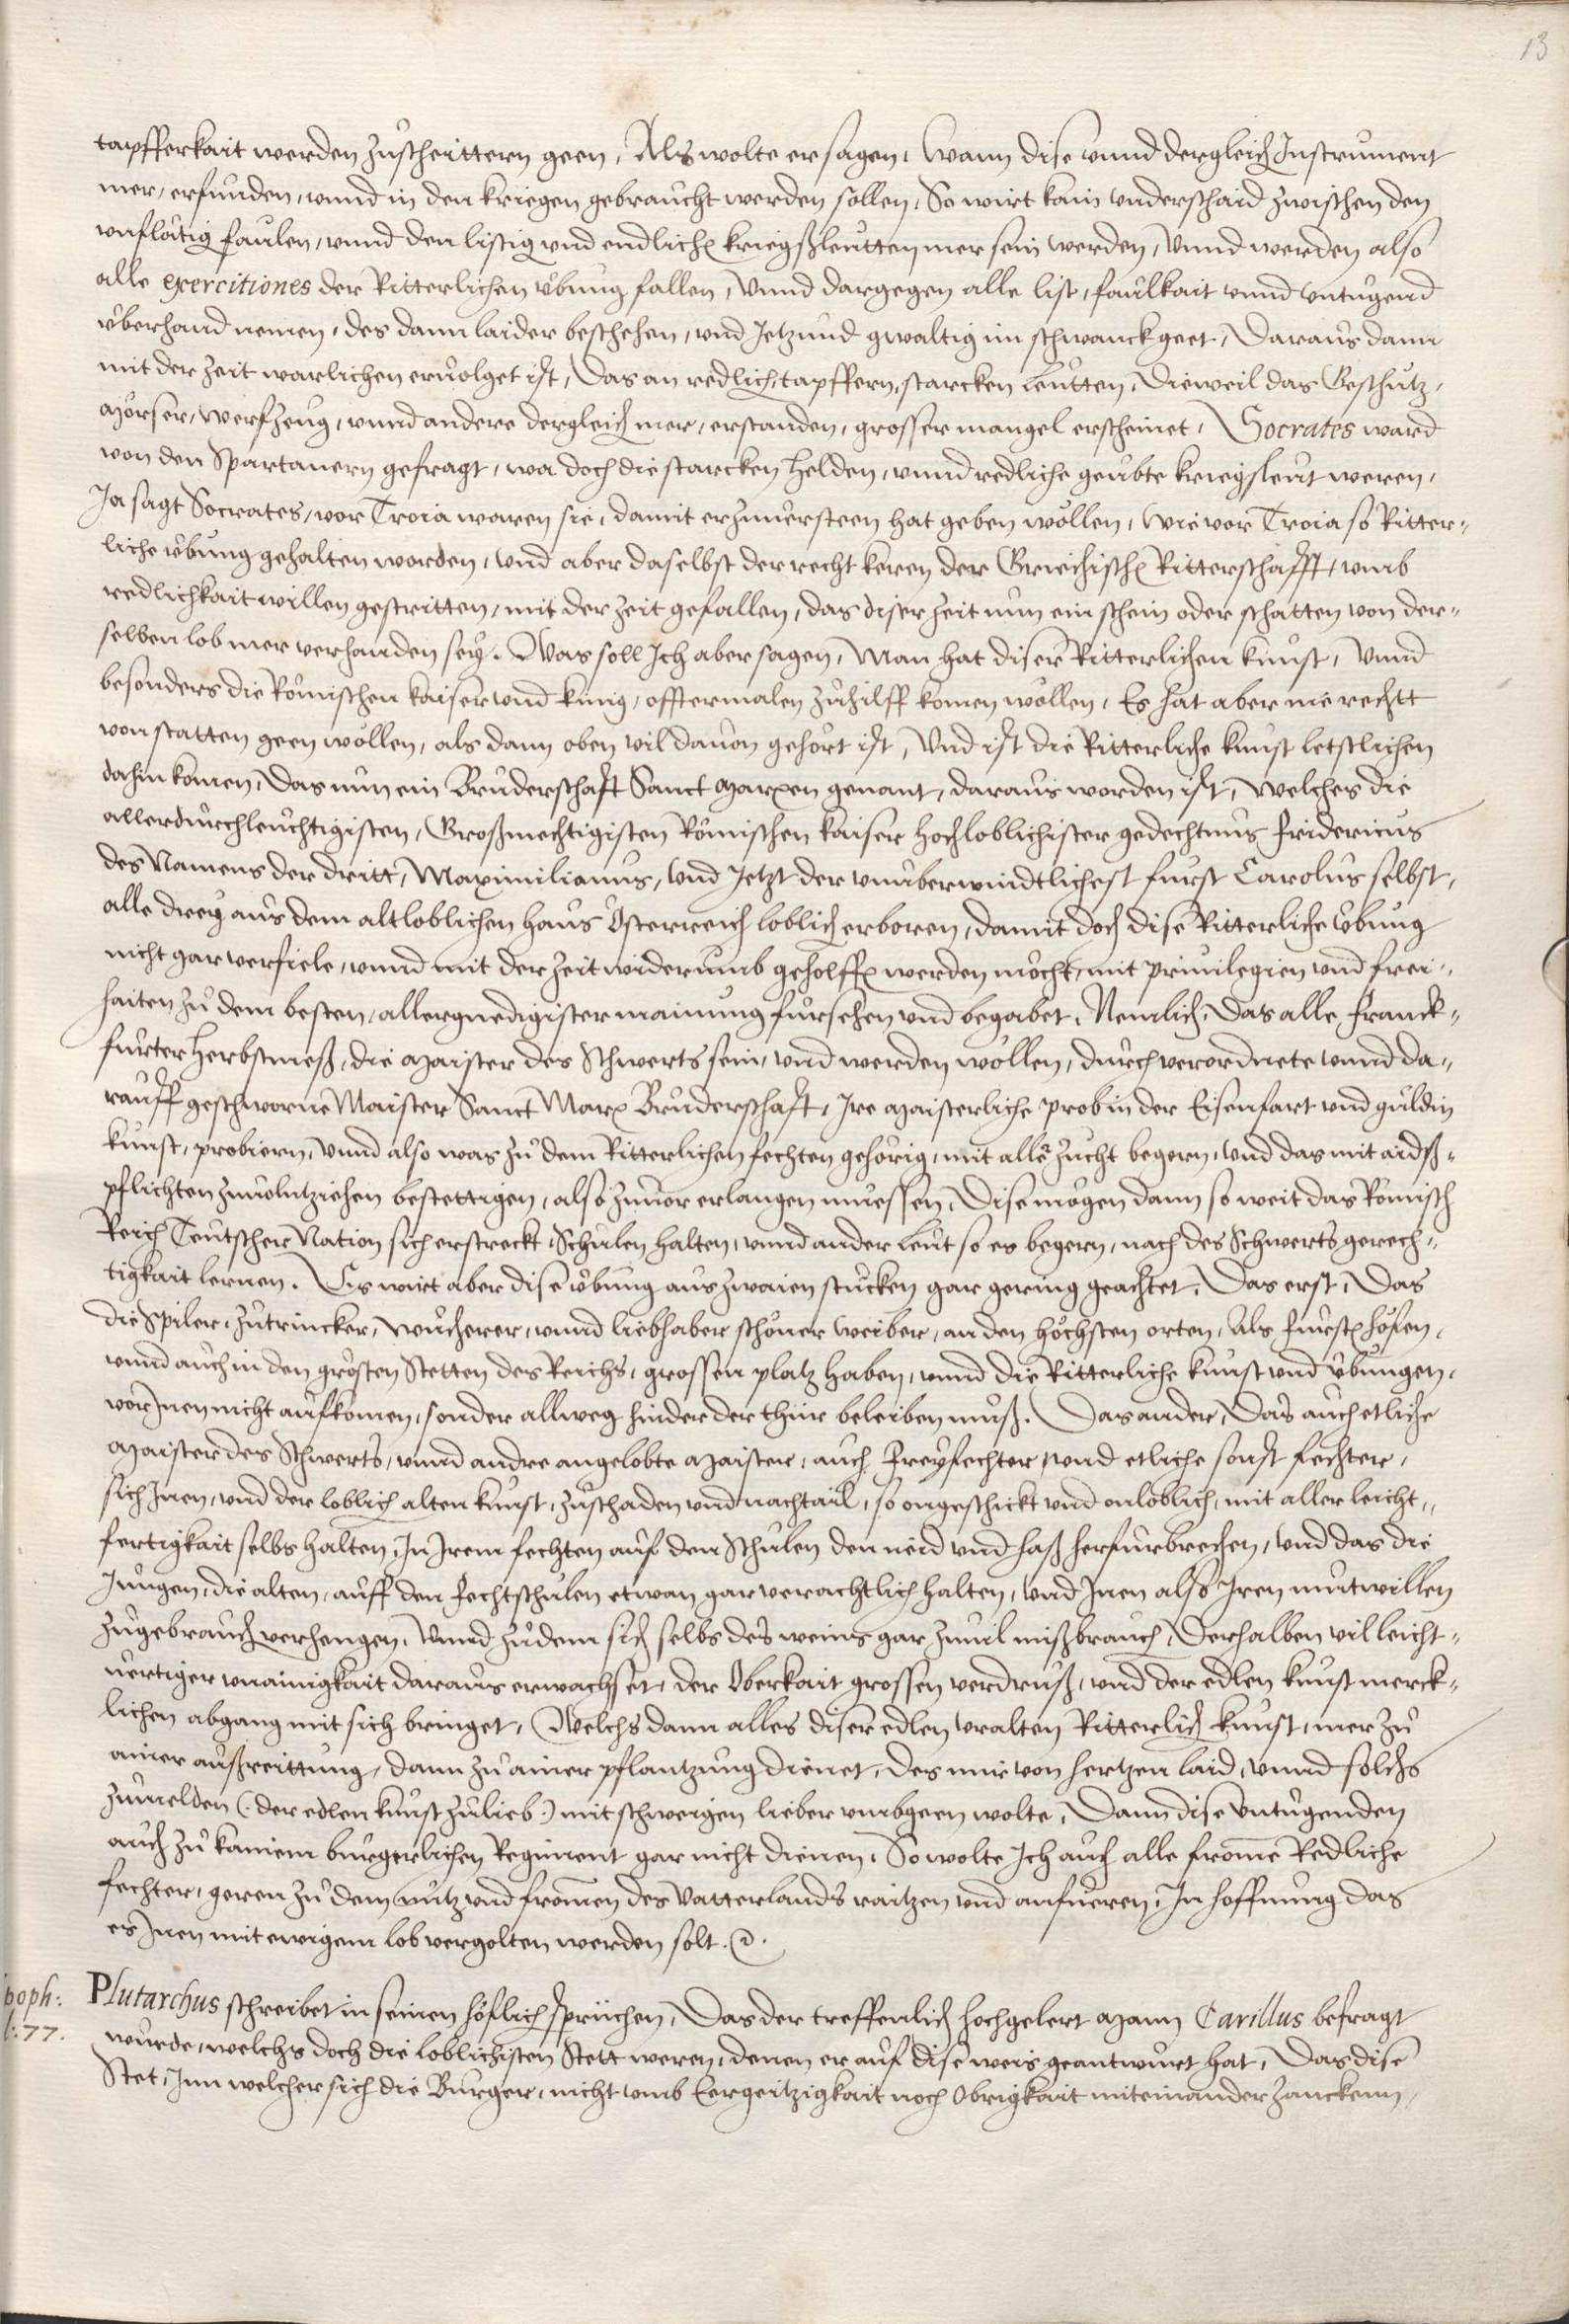 13
tapfferkait werden zuscheittern geen, Als wolte er sagen, Wann dise vnnd dergleich Instrument
mer, erfunden, vnnd in den kriegen gebraucht werden sollen, So wirt kain vnderschaid zwischen den
vnflätig faulen, vnnd den listig vnd endlich kriegsßleutten mer sein werden, Vnnd werden also
alle exercitiones der Ritterlichen übung fallen, Vnnd dargegen alle list, faulkait vnnd vntugend
überhand nemen, des dann laider beschehen, vnd Jetzund gwaltig im schwanck geet, Daraus dann
mit der zeit warlichen eruolget ist, Das an redlich, tapffern, starcken leutten, Dieweil das Geschutz,
Mörser, Werfzeug, vnnd andere dergleich mer, erstanden, grosser mangel erscheinet, Socrates ward
von den Spartanern gefragt, wa doch die starcken Helden, vnnd redliche geubte kriegsleut weren,
Ja sagt Socrates, vor Troia waren sie, damit er zuuersteen hat geben wöllen, wie vor Troia so Ritter„
liche übung gehalten worden, vnd aber daselbst der recht keren der Griechisch Ritterschafft, vmb
redlichkait willen gestritten, mit der zeit gefallen, das diser zeit nun ein schein oder schatten von der„
selben lob mer verhanden sey. Was soll Ich aber sagen, Man hat diser Ritterlichen kunst, Vnnd
besonders die Römischen kaiser vnd künig, offtermalen zuhilff komen wöllen, Es hat aber nie rechtt
von statten geen wöllen, als dann oben vil dauon gehört ist, Vnd ist die Ritterliche kunst letstlichen
dahin komen, Das nun ein Bruderschafft Sanct Marxen genant, daraus worden ist, Welches die
allerdurchleuchtigisten, Großmechtigisten Römischen kaiser hochloblichister gedechtnus Fridericus
des Namens der dritt, Maximilianus, Vnd Jetzt der vnüberwindtlichest fürst Carolus selbst,
alle drey aus dem altloblichen haus Österreich loblich erboren, damit doch dise Ritterliche übung
nicht gar verfiele, vnnd mit der zeit widerumb geholffen werden möcht, mit priuilegien vnd frei„
haiten zu dem besten, allergnedigister mainung fürsehen vnd begabet, Nemlich, Das alle Franck„
furter Herbstmeß, die Maister des Schwerts sein, vnd werden wöllen, durch verordnete vnnd da„
rauff geschworne Maister Sanct Marx Bruderschafft, Ire Maisterliche prob in der Eisenfart vnd guldin
kunst, probiern, Vnnd also was zu dem Ritterlichen fechten gehörig, mit aller zucht begern, vnd das mit aidß„
pflichten zuuolntziehen bestettigen, also zuuor erlangen muessen, Dise mögen dann so weit das Römisch
Reich Teutscher Nation sich erstreckt, Schulen halten, vnnd ander leut so es begern, nach des Schwerts gerech„
tigkait lernen. Es wirt aber dise übung aus zwaien stucken gar gering geachtet, Das erst, Das
die Spiler, zutrincker, Wucherer, vnnd liebhaber schöner weiber, an den höchsten orten, Als Fürsten höfen,
vnnd auch in den grösten Stetten des Reichs, grossen platz haben, vnnd die Ritterliche kunst vnd übungen,
vor Jnen nicht aufkomen, sonder allweg hinder der thür beleiben muß. Das ander, Das auch etliche
Maister des Schwerts, vnnd andre angelobte Maister, auch Freyfechter, vnd etliche sonst fechter,
sich Jnen, vnd der loblich alten kunst, zuschaden vnd nachtail, so ongeschickt vnd onloblich, mit aller leicht„
fertigkait selbs halten, In Jrem fechten auf den Schulen den neid vnd haß herfürbrechen, vnd das die
Jungen, die alten, auff den fechtschulen etwan gar verachtlich halten, vnd Jnen also Jren mutwillen
zugebrauch verhengen, Vnnd zudem sich selbs des weins gar zuuil mißbrauch, Derhalben vil leicht„
uertiger vnainigkait daraus erwachset, der Oberkait grossen verdruß, vnd der edlen kunst merck„
lichen abgang mit sich bringet, Welchs dann alles diser edlen vralten Ritterlich kunst, mer zu
ainer außreittung, dann zu ainer pflantzung dienet, des mir von hertzen laid, vnnd solchs
zumelden (: der edlen kunst zulieb :) mit schweigen lieber vmbgeen wolte, Dann dise vntugenden
auch zu kainem burgerlichen Regiment gar nicht dienen. So wolte Ich auch alle frome Redliche
fechter, geren zu dem nutz vnd fromen des Vatterlands raitzen vnd anfueren, In hoffnung das
es Jnen mit ewigem lob vergolten werden solt.
poph:
l: 77.
Plutarchus schreibet in seinen höflich sprüchen, Das der treffenlich hochgelert Mann Carillus befragt
wurde, welchs doch die loblichisten Stett weren, denen er auf dise weis geantwurt hat, Das dise
Stet, Inn welcher sich die Burger, nicht vmb Eergeitzigkait noch Obrigkait miteinander zanckenn,